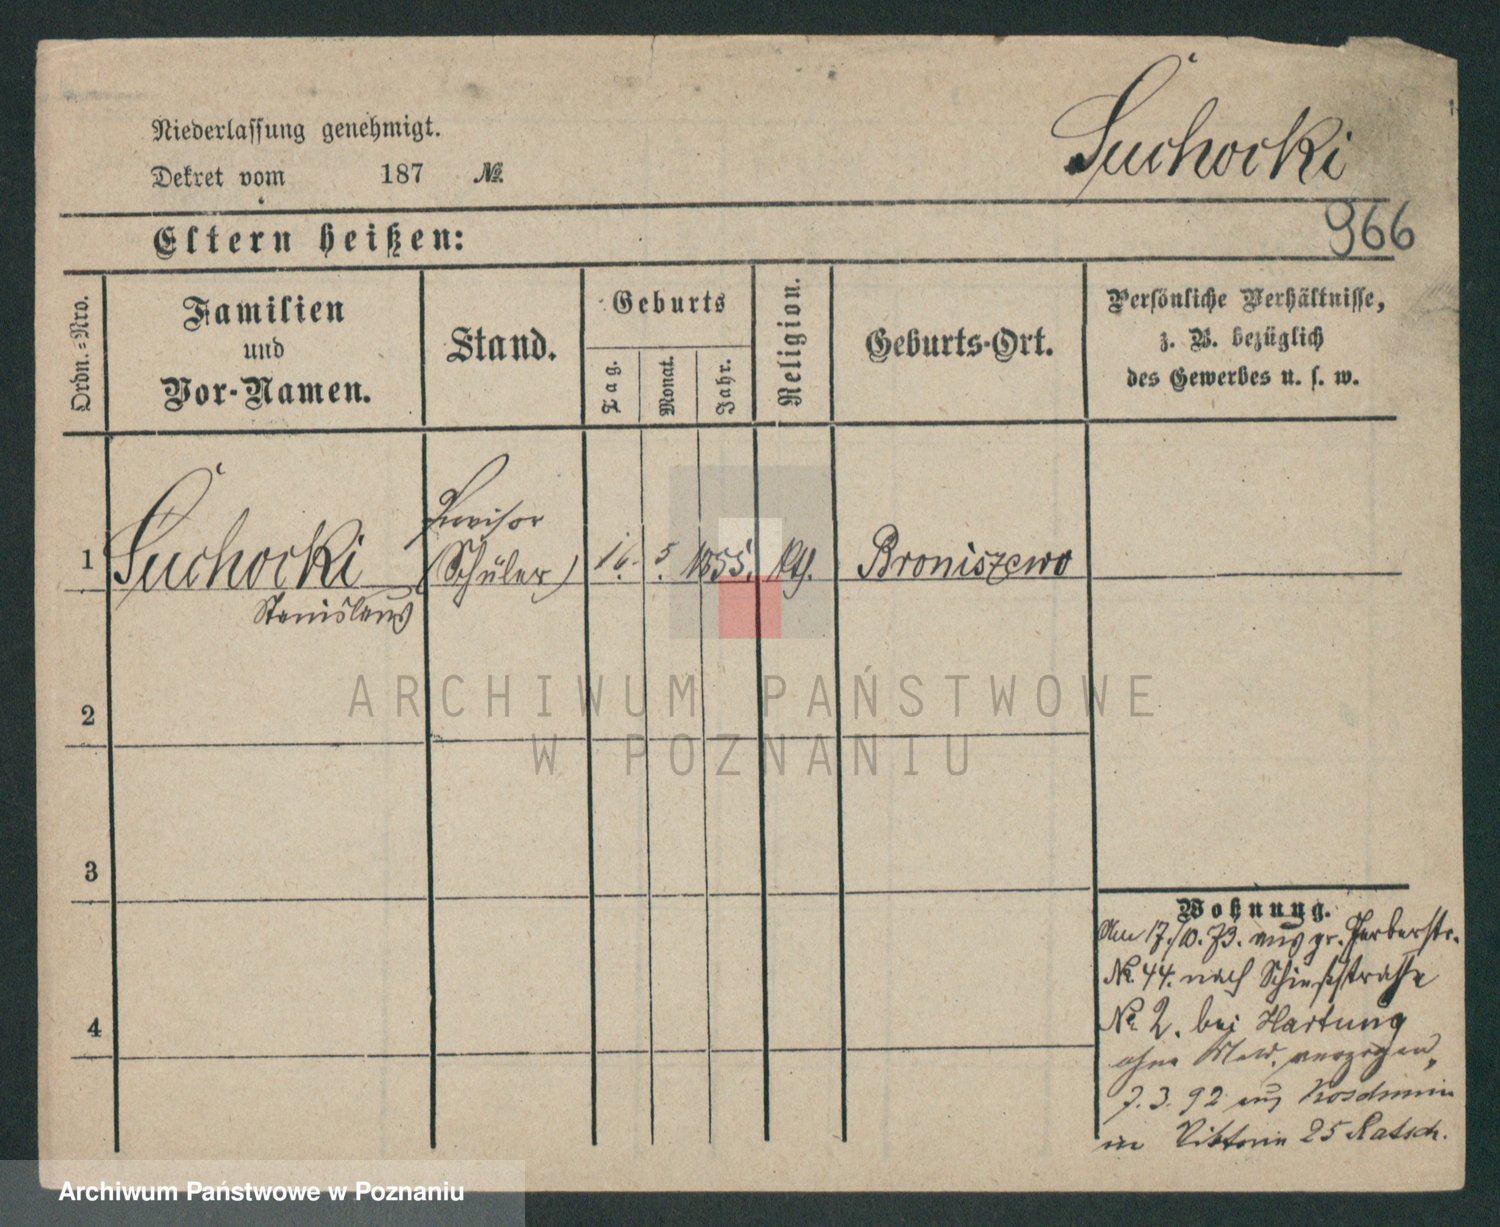 Niederlassung genehmigt.
Dekret vom 187 №
Suchocki
Eltern heißen:
966
Ordn.-Nro.
Familien
und
Vor-Namen.
Stand.
Geburts
Tag.
Monat.
Jahr.
Religion.
Geburts-Ort.
Persönliche Verhältnisse,
z. B. bezüglich
des Gewerbes u. s. w.
1 Suchocki
Stanislaus
Provisor
(Schüler)
16. 5. 1855. kath. Broniszewo
2
3
4
Wohnung.
Am 17./10. 73. aus gr. Gerberstr.
No. 44. nach Schießstraße
No 2. bei Hartung
ohne Meld. verzogen,
7. 3. 92 aus Koschmin
in Viktoria 25 Ratsch.
ARCHIWUM PAŃSTWOWE
W POZNANIU
Archiwum Państwowe w Poznaniu